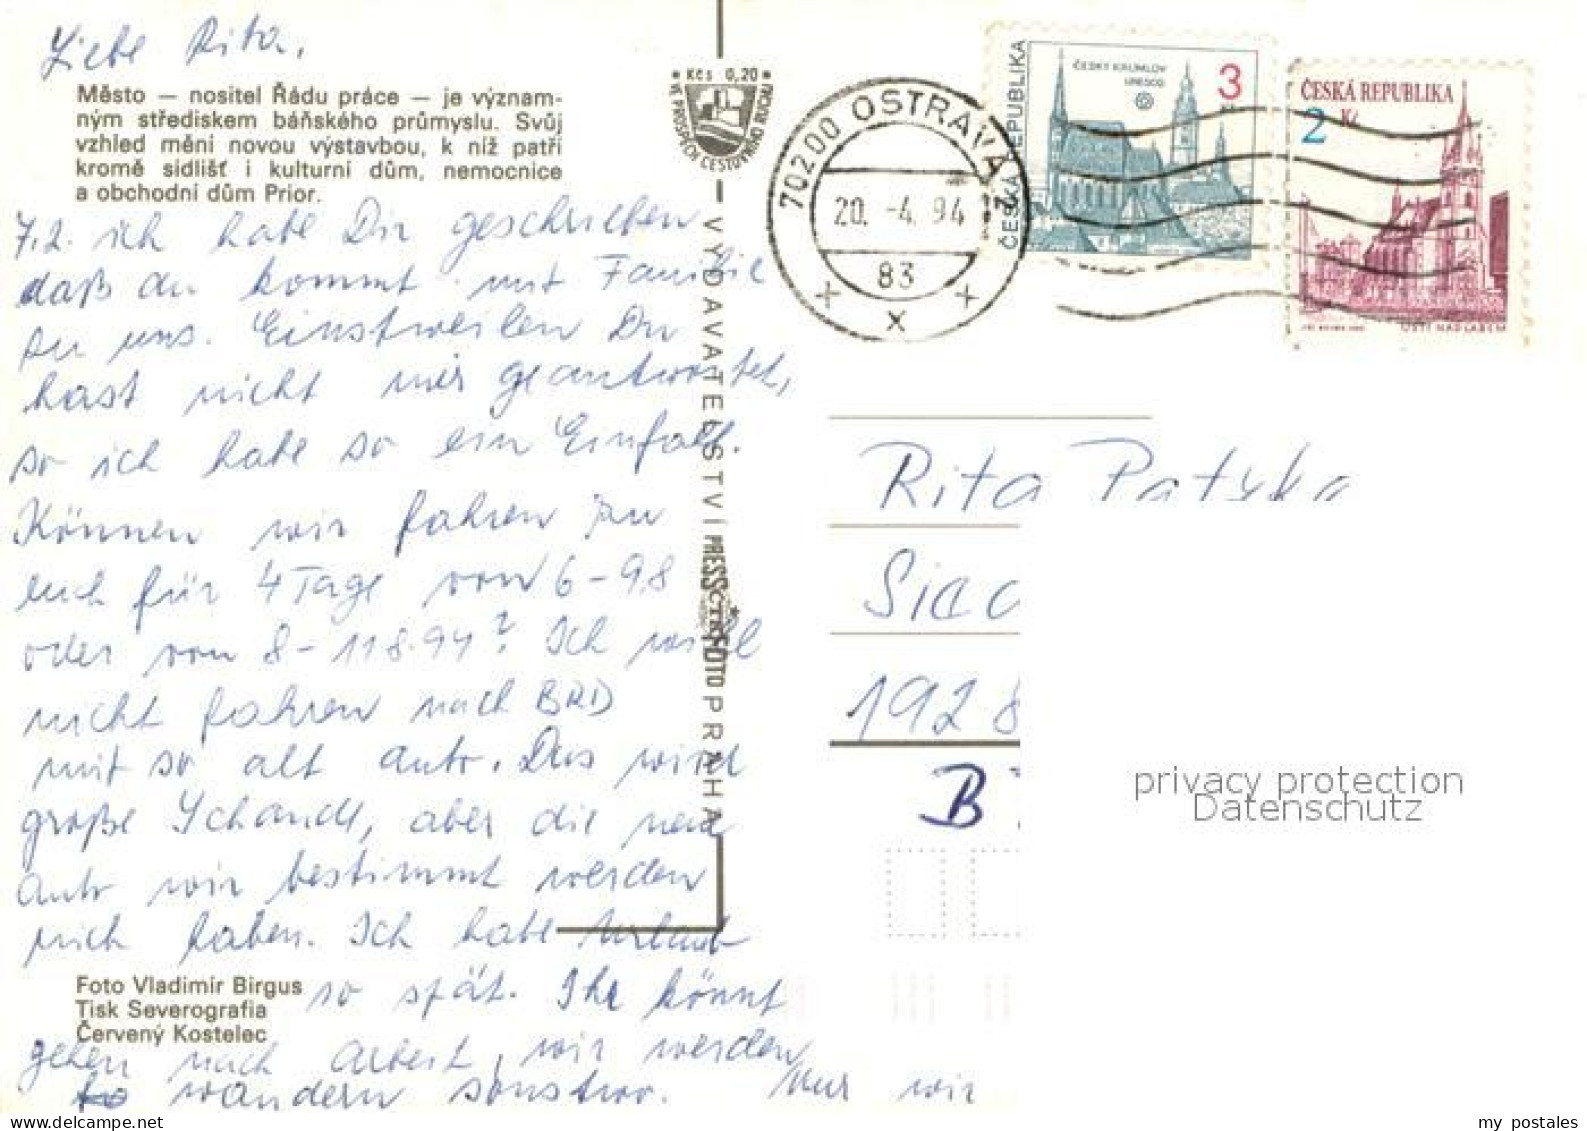 Liebe Rita,
Město — nositel Řádu práce — je význam-
ným střediskem báňského průmyslu. Svůj
vzhled mění novou výstavbou, k níž patří
kromě sídlišť i kulturní dům, nemocnice
a obchodní dům Prior.
7.2. ich habe Dir geschrieben
daß du kommt mit Familie
zu uns. Einstweilen Du
hast nicht mir geantwortet,
so ich habe so ein Einfall.
Können wir fahren zu
euch für 4 Tage von 6-9.8
oder von 8-11.8.94? Ich will
nicht fahren nach BRD
mit so alt auto. Das wird
große Schande, aber die neue
Auto wir bestimmt werden
nich haben. Ich habe Urlaub
so spät. Ihr könnt
gehen nach Arbeit, wir werden
wandern sonstwo. Nur wir
Foto Vladimír Birgus
Tisk Severografia
Červený Kostelec
Kčs 0,20
VE PROSPĚCH CESTOVNÍHO RUCHU
VYDAVATELSTVÍ PRESSFOTO PRAHA
702 00 OSTRAVA 2
20. -4. 94
83
ČESKÝ KRUMLOV
UNESCO
3
ČESKÁ REPUBLIKA
ČESKÁ REPUBLIKA
2 Kč
ÚSTÍ NAD LABEM
Rita Patyka
1928
B
privacy protection
Datenschutz
my postales